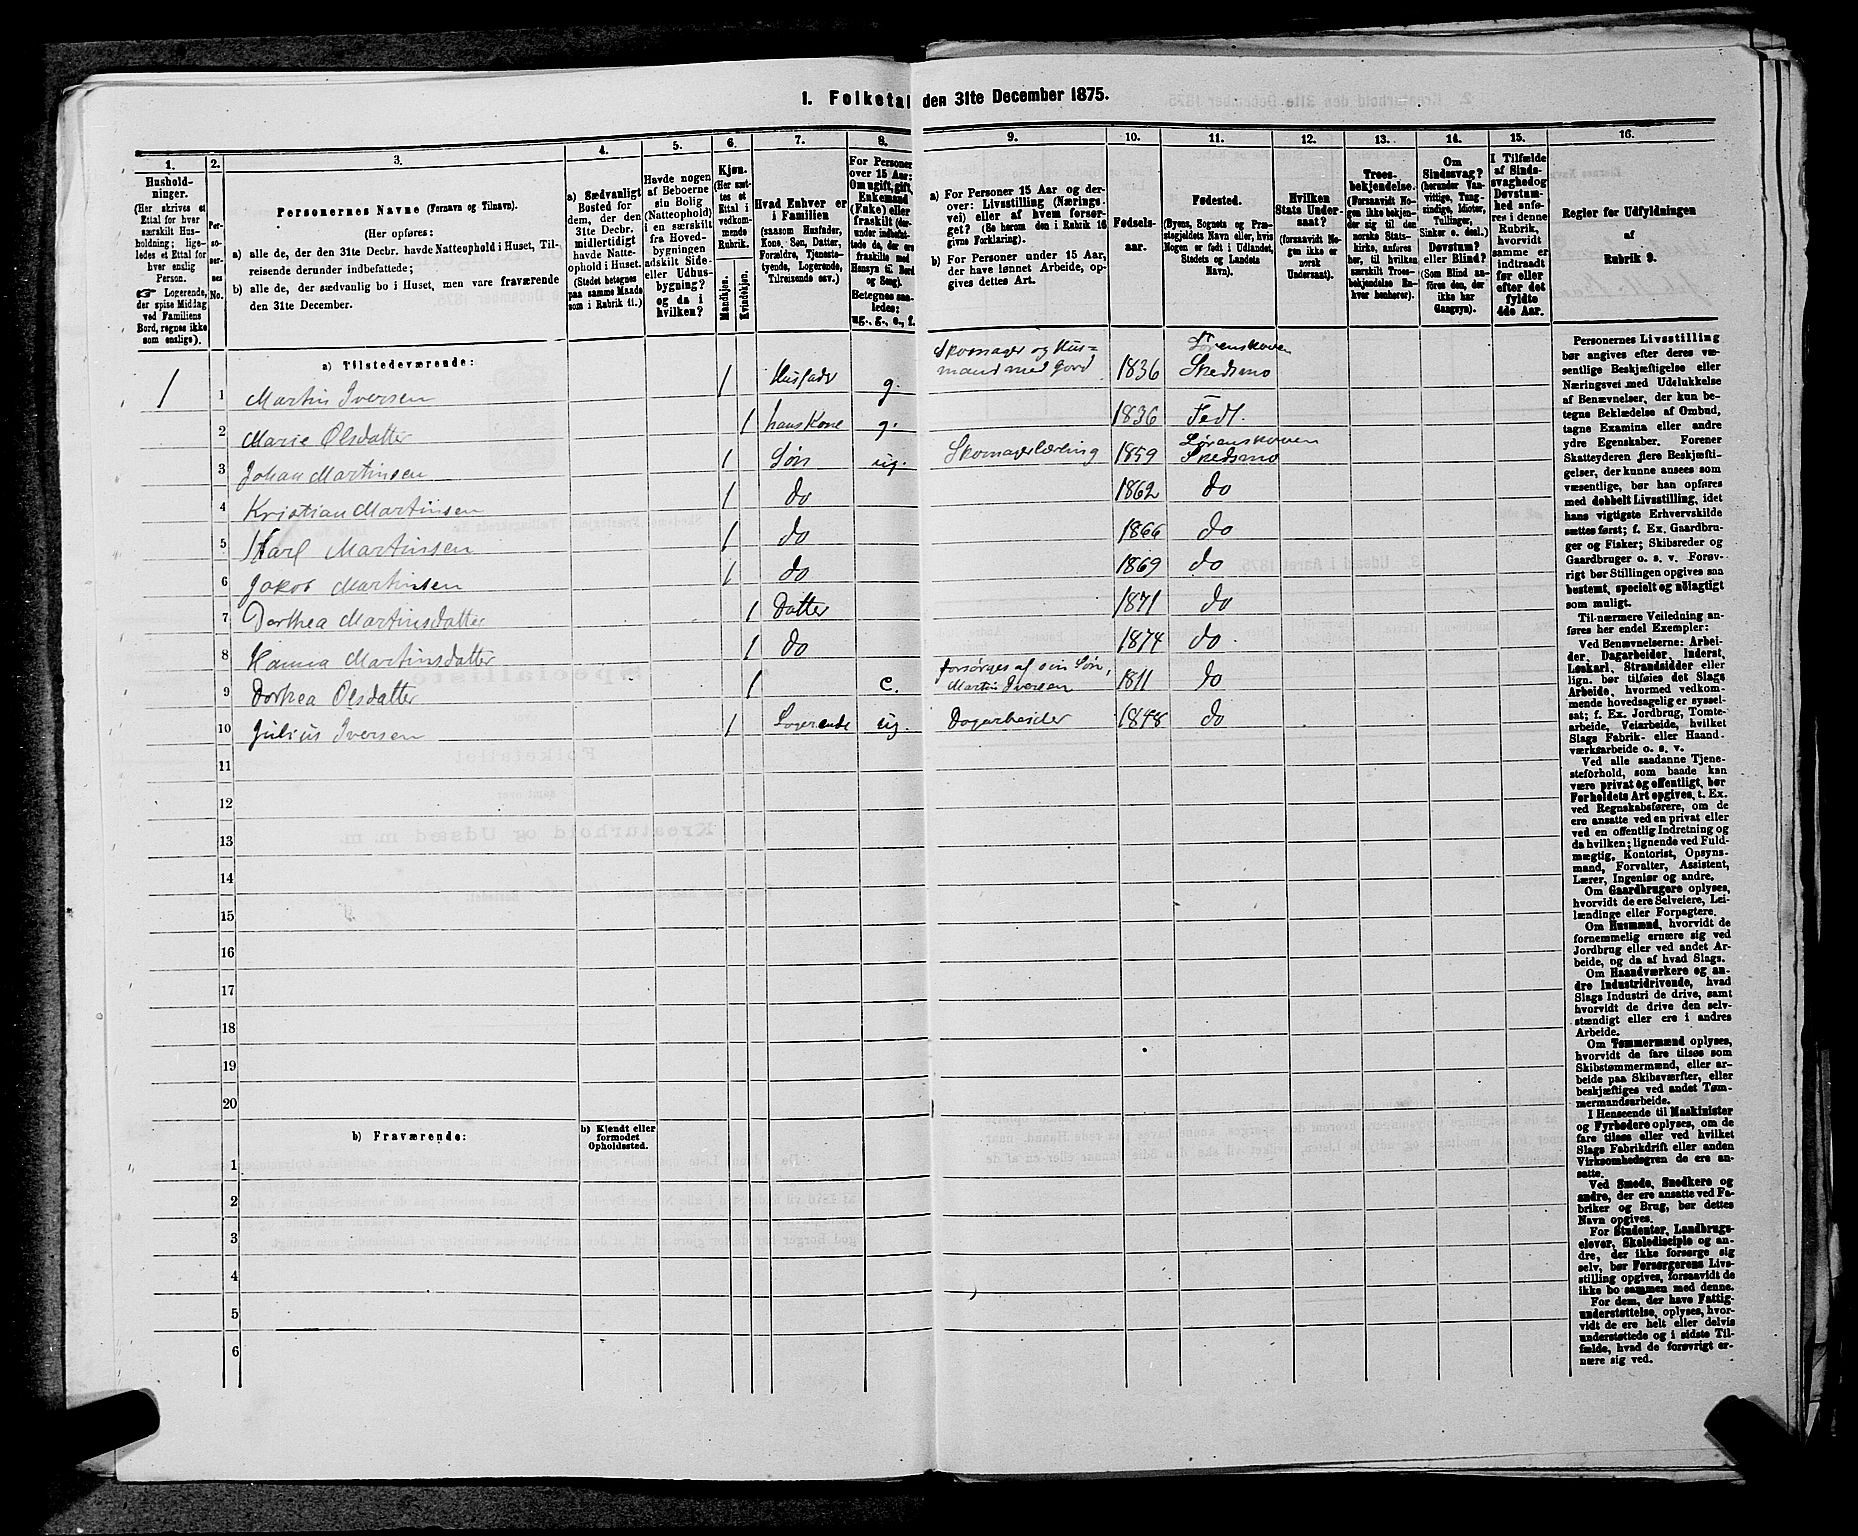 1. Folketal den 31te December 1875.
1.
Hushold-
ninger.
(Her skrives et
Ettal for hver
særskilt Hus-
holdning; lige-
ledes et Ettal for
hver enslig
Person.
☞ Logerende,
der spise Middag
ved Familiens
Bord, regnes ikke
som enslige).
2.
Per-
so-
ner-
nes
No.
3.
Personernes Navne (Fornavn og Tilnavn).
(Her opføres:
a) alle de, der den 31te Decbr. havde Natteophold i Huset, Til-
reisende derunder indbefattede;
b) alle de, der sædvanlig bo i Huset, men vare fraværende
den 31te December.
4.
a) Sædvanligt
Bosted for
dem, der den
31te Decbr.
midlertidigt
havde Natte-
ophold i Huset.
(Stedet betegnes
paa samme Maade
som i Rubrik 11.)
5.
Havde nogen
af Beboerne
sin Bolig
(Natteophold)
i en særskilt
fra Hoved-
bygningen
adskilt Side-
eller Udhus-
bygning?
og da i
hvilken?
6.
Kjøn.
(Her sæt-
tes et
Ettal i
vedkom-
mende
Rubrik.
Mandkjøn.
Kvindekjøn.
7.
Hvad Enhver er
i Familien
(saasom Husfader,
Kone, Søn, Datter,
Forældre, Tjeneste-
tyende, Logerende,
Tilreisende osv.)
8.
For Personer
over 15 Aar:
Om ugift, gift,
Enkemand
(Enke) eller
fraskilt (der-
under indbefat-
tede de, der ere
fraskilte med
Hensyn til Bord
og Seng).
Betegnes saa-
ledes:
ug., g., e., f.
9.
a) For Personer 15 Aar og der-
over: Livsstilling (Nærings-
vei) eller af hvem forsør-
get? (Se herom den i Rubrik 16
givne Forklaring).
b) For Personer under 15 Aar,
der have lønnet Arbeide, op-
gives dettes Art.
10.
Fødsels-
aar.
11.
Fødested.
(Byens, Sognets og Præ-
stegjeldets Navn eller, hvis
Nogen er født i Udlandet,
Stedets og Landets
Navn).
12.
Hvilken
Stats Under-
saat?
(forsaavidt No-
gen ikke er
norsk
Undersaat).
13.
Troes-
bekjendelse.
(Forsaavidt No-
gen ikke bekjen-
der sig til den
norske Stats-
kirke, anføres
her, til hvilken
særskilt Troes-
bekjendelse En-
hver henhører).
14.
Om
Sindssvag?
(herunder Van-
vittige, Tung-
sindige, Idioter,
Tullinger,
Sinker o. desl.)
Døvstum?
eller Blind?
(Som Blind an-
føres den, der
ikke har
Gangsyn).
15.
I Tilfælde
af Sinds-
svaghed og
Døvstum-
hed anfø-
res i denne
Rubrik,
hvorvidt
samme er
indtraadt
før eller
efter det
fyldte
4de Aar.
16.
Regler for Udfyldningen
af
Rubrik 9.
a) Tilstedeværende:
1 1 Martin Iversen 1 Husfader g. Skomager og Hus=
mand med Jord 1836 Lørenskoven
Skedsmo
2 Marie Olsdatter 1 hans Kone g. 1836 Fedt.
3 Johan Martinsen 1 Søn ug. Skomagerlærling 1859 Lørenskoven
Skedsmo
4 Kristian Martinsen 1 do 1862 do
5 Karl Martinsen 1 do 1866 do
6 Jakob Martinsen 1 do 1869 do
7 Dorthea Martinsdatter 1 Datter 1871 do
8 Hanna Martinsdatter 1 do 1874 do.
9 Dorthea Olsdatter 1 e. forsørges af sin Søn,
Martin Iversen 1811 do
10 Julius Iversen 1 Logerende ug. Dagarbeider 1848 do
11
12
13
14
15
16
17
18
19
20
b) Fraværende:
b) Kjendt eller
formodet
Opholdssted.
1
2
3
4
5
6
Personernes Livsstilling
bør angives efter deres væ-
sentlige Beskjæftigelse eller
Næringsvei med Udelukkelse
af Benævnelser, der kun be-
tegne Beklædelse af Ombud,
tagne Examina eller andre
ydre Egenskaber. Forener
Skatteyderen flere Beskjæfti-
gelser, der kunne ansees som
væsentlige, bør han opføres
med dobbelt Livsstilling, idet
hans vigtigste Erhvervskilde
sættes først; f. Ex. Gaardbru-
ger og Fisker; Skibsreder og
Gaardbruger o. s. v. Forøv-
rigt bør Stillingen opgives saa
bestemt, specielt og nøiagtigt
som muligt.
Til nærmere Veiledning an-
føres her endel Exempler:
Ved Benævnelserne: Arbei-
der, Dagarbeider, Inderst,
Løskarl, Strandsidder eller
lign. bør tilføies det Slags
Arbeide, hvormed vedkom-
mende hovedsagelig er syssel-
sat; f. Ex. Jordbrug, Tomte-
arbeide, Veiarbeide, hvilket
Slags Fabrik- eller Haand-
værksarbeide o. s. v.
Ved alle saadanne Tjene-
steforhold, som baade kan
være privat og offentligt, bør
Forholdets Art opgives, t. Ex.
ved Regnskabsførere, om de
ere ansatte ved en privat eller
ved en offentlig Indretning og
da hvilken; lignende ved Fuld-
mægtig, Kontorist, Opsyns-
mand, Forvalter, Assistent,
Lærer, Ingeniør og andre.
Om Gaardbrugere oplyses,
hvorvidt de ere Selveiere, Lei-
lændinge eller Forpagtere.
Om Husmænd, hvorvidt de
fornemmelig ernære sig ved
Jordbrug eller ved andet Ar-
beide, og da af hvad Slags.
Om Haandværkere og an-
dre Industridrivende, hvad
Slags Industri de drive, samt
hvorvidt de drive den selv-
stændigt eller ere i andres
Arbeide.
Om Tømmermænd oplyses,
hvorvidt de fare tilsøs som
Skibstømmermænd, eller ar-
beide paa Skibsværfter, eller
beskjæftiges ved andet Tøm-
mermandsarbeide.
I Henseende til Maskinister
og Fyrbødere oplyses, om de
fare tilsøs eller ved hvilket
Slags Fabrikdrift eller anden
Virksomhedsgren de ere an-
satte.
Ved Smede, Snedkere og
andre, der ere ansatte ved Fa-
briker og Brug, bør dettes
Navn opgives.
For Studenter, Landbrugs-
elever, Skoledisciple og an-
dre, der ikke forsørge sig
selv, bør Forsørgerens Livs-
stilling opgives, forsaavidt de
ikke bo sammen med denne.
For dem, der have Fattig-
understøttelse, oplyses, hvor-
vidt de ere helt eller delvis
understøttede og i sidste Til-
fælde, hvad de forøvrigt er-
nære sig ved.